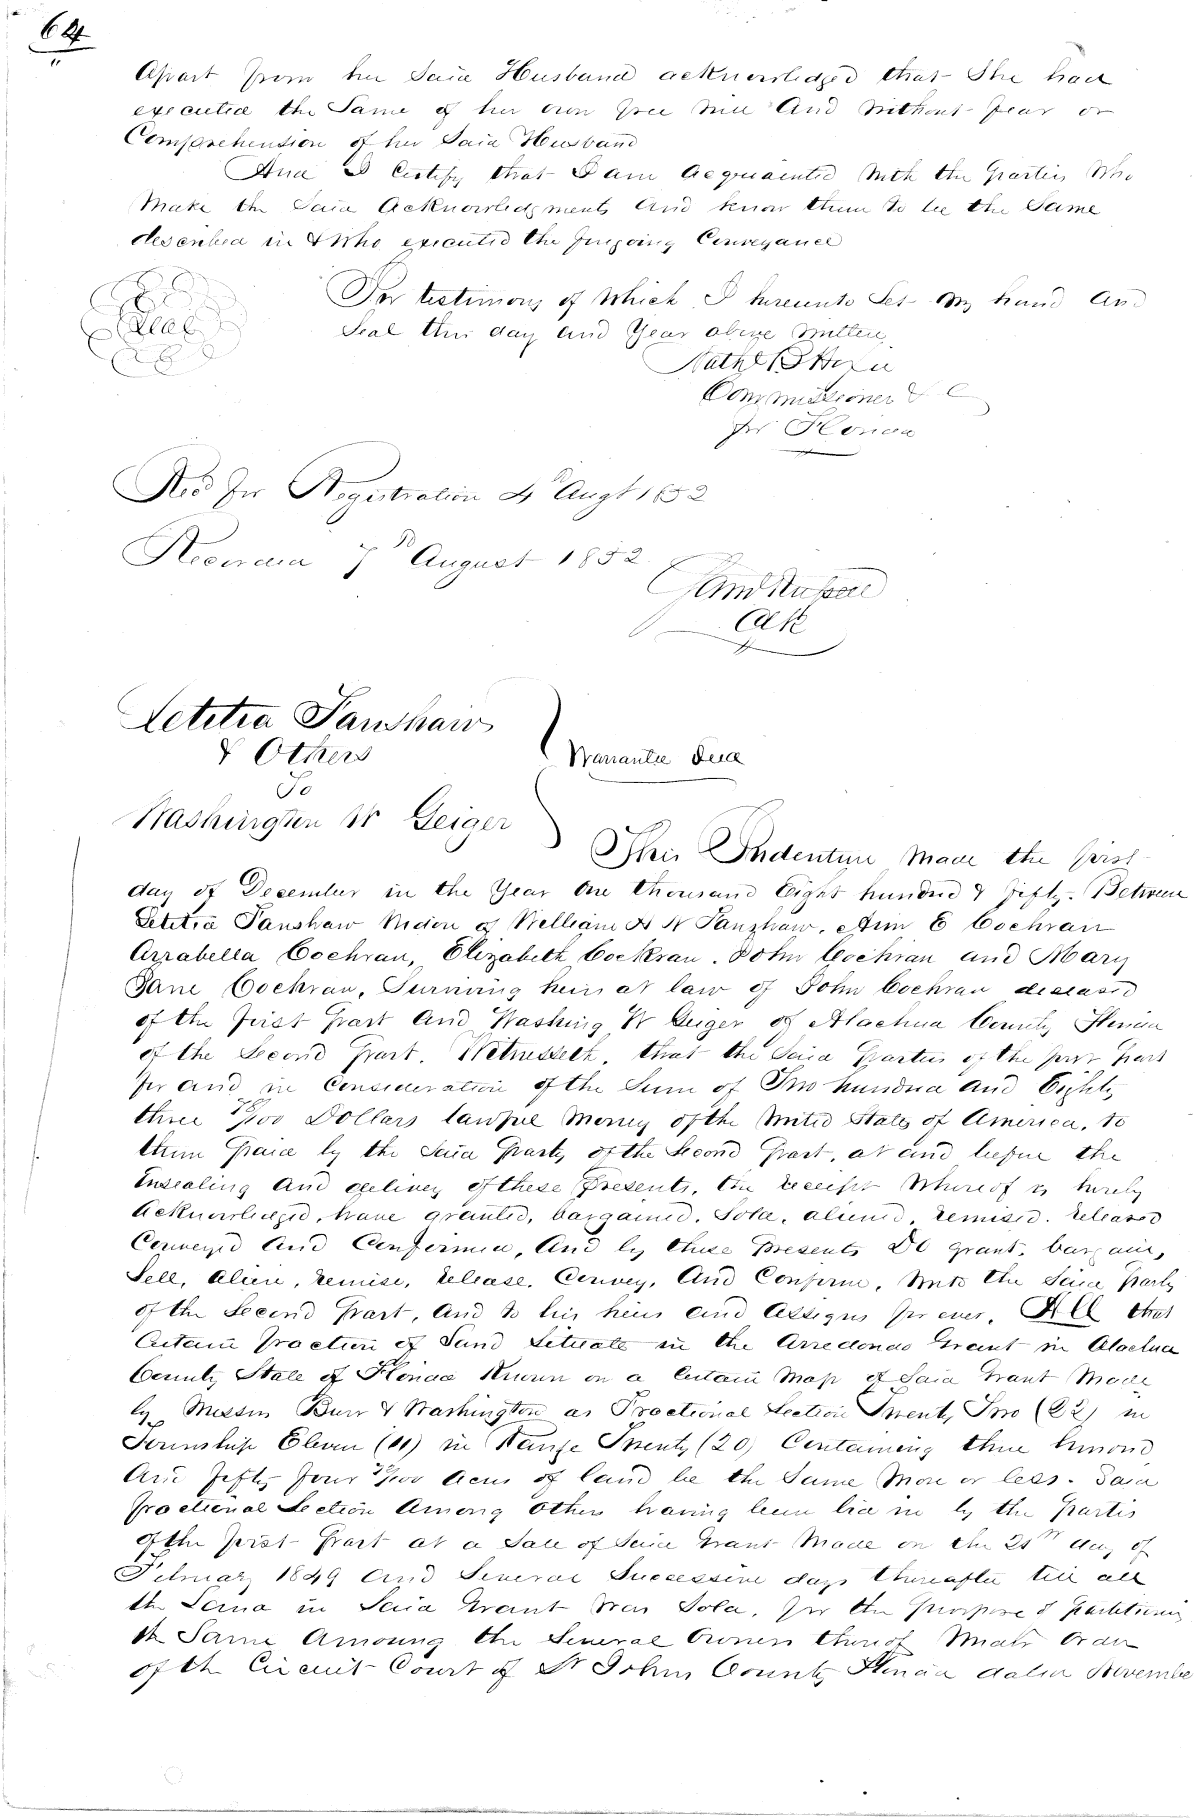 64
Apart from her Said Husband acknowledged that She had
executed the Same of her own free will And without fear or
Comprehension of her Said Husband
And I Certify that I am acquainted with the parties Who
Make the Said Acknowledgments and know them to be the Same
described in & Who executed the forgoing Conveyance
For testimony of Which I hereunto Set my hand And
Seal this day and Year above written
Seal
Commissioner &c
for Florida
Recd for Registration 4th Augt 1852
Recorded 7th August 1852
Saml Russell
Clk
Letitia Fanshaw
& Others
To
Washington W Geiger
Warrantee Deed
This Indenture Made the first
day of December in the Year One thousand Eight hundred & fifty. Between
Letitia Fanshaw Widow of William H W Fanshaw, Ann E Cochran
Arrabella Cochran, Elizabeth Cockran. John Cochran and Mary
Jane Cochran, Surviving heirs at law of John Cochran deceased
of the first Part And Washing W Geiger of Alachua County Florida
of the Second Part. Witnesseth, that the Said Parties of the first part
for and in Consideration of the Sum of Two hundred and Eighty
three /100 Dollars lawful Money of the United States of America, to
them Paid by the Said Party of the Second Part, at and before the
Ensealing And delivery of these Presents, the receipt Whereof is hereby
Acknowledged, have granted, bargained, Sold, aliened, remised, released
Conveyed And Confirmed, And by these Presents Do grant, bargain,
Sell, alien, remise, release, Convey, And Confirm, Unto the Said party
of the Second Part, And to his heirs and Assigns for ever, All that
Certain fraction of Land Situate in the Arredondo Grant in Alachua
County State of Florida Known on a Certain Map of Said Grant Made
by Messrs Burr & Washington as Fractional Section Twenty Two (22) in
Township Eleven (11) in Range Twenty (20) Containing three hundred
And fifty four /100 Acres of land be the Same More or less. Said
fractional Section Among others having been bid in by the parties
of the first Part at a Sale of Said Grant Made on the 21st day of
February 1849 and Several Successive days thereafter till all
the Land in Said Grant Was Sold, for the purpose of partitioning
the Same Amoung the Several Owners thereof Under Order
of the Circuit Court of St Johns County Florida dated November